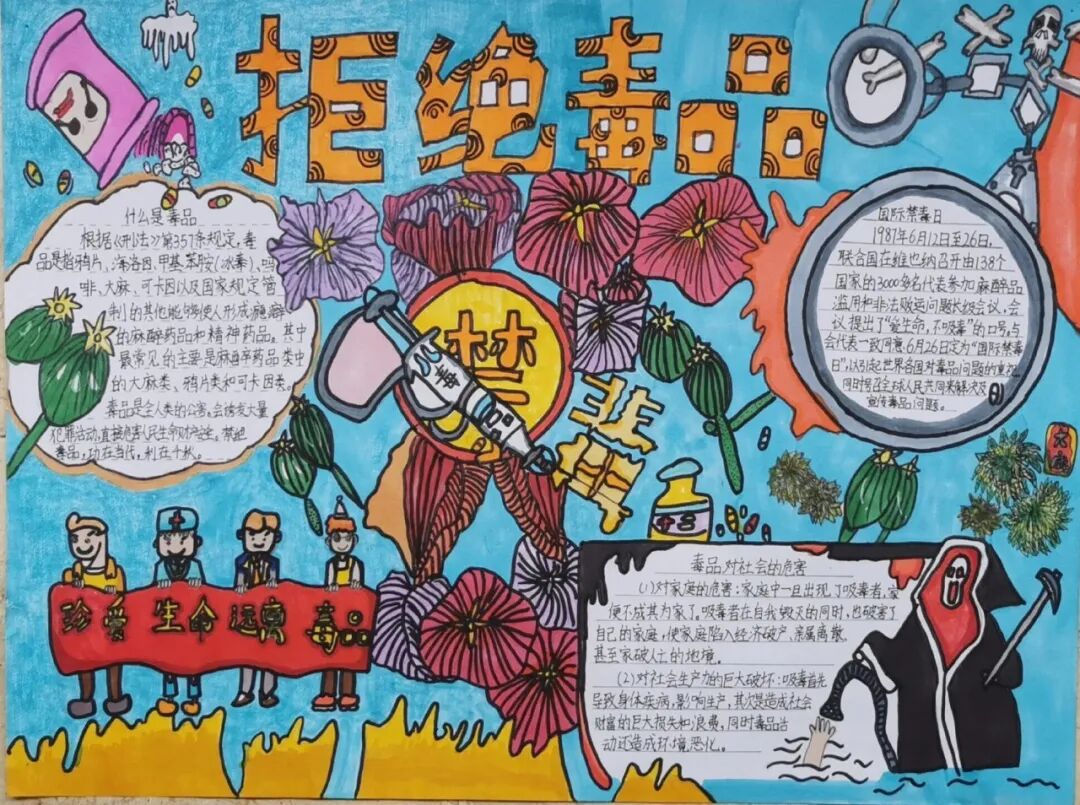 拒绝毒品
什么是毒品
根据《刑法》第357条规定,毒
品是指鸦片、海洛因、甲基苯胺(冰毒)、吗
啡、大麻、可卡因以及国家规定管
制的其他能够使人形成瘾癖
的麻醉药品和精神药品。其中
最常见的主要是麻醉药品类中
的大麻类、鸦片类和可卡因类。
毒品是全人类的公害。会诱发大量
犯罪活动,直接危害人民生命财产安全。禁绝
毒品,功在当代,利在千秋。
国际禁毒日
1987年6月12日至26日,
联合国在维也纳召开由138个
国家的3000多名代表参加麻醉品
滥用和非法贩运问题长级会议,会
议提出了“爱生命,不吸毒”的口号,与
会代表一致同意6月26日定为“国际禁毒
日”,以引起世界各国对毒品问题的重视,
同时号召全球人民共同来解决及
宣传毒品问题。
禁
毒
珍爱生命远离毒品
毒品对社会的危害
(1)对家庭的危害:家庭中一旦出现了吸毒者,家
便不成其为家了。吸毒者在自我毁灭的同时,也破害了
自己的家庭,使家庭陷入经济破产、亲属离散、
甚至家破人亡的地境。
(2)对社会生产力的巨大破坏:吸毒首先
导致身体疾病,影响生产,其次是造成社会
财富的巨大损失和浪费,同时毒品活
动还造成环境恶化。